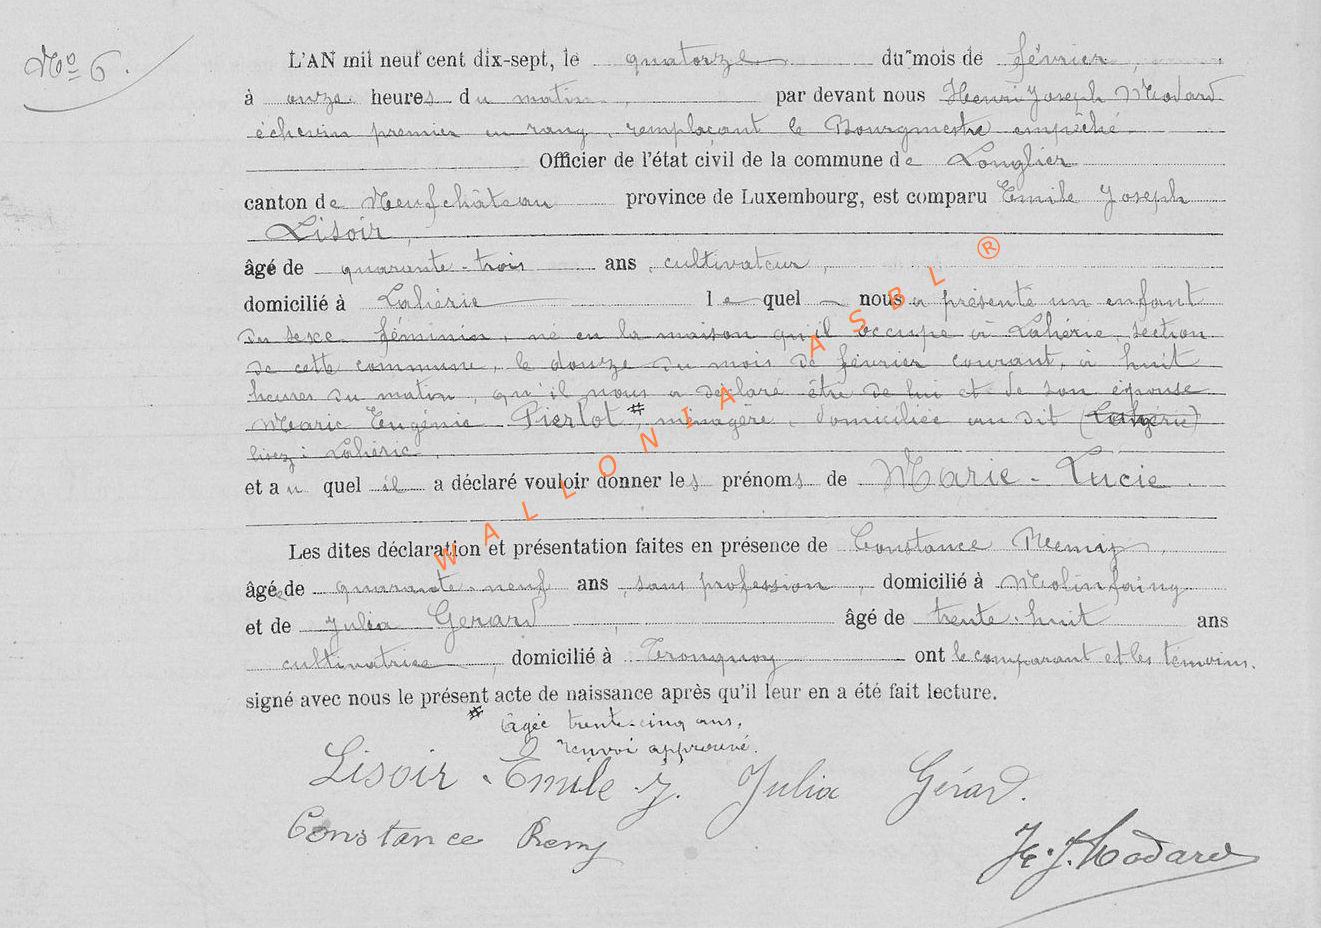 No 6.
L'AN mil neuf cent dix-sept, le quatorze du mois de février,
à onze heures du matin, par devant nous Henri Joseph Modard
échevin premier en rang, remplaçant le Bourgmestre empêché
Officier de l'état civil de la commune de Longlier
canton de Neufchâteau province de Luxembourg, est comparu Emile Joseph
Lisoir,
âgé de quarante-trois ans, cultivateur,
domicilié à Lahérie lequel nous a présenté un enfant
du sexe féminin, né en la maison qu'il occupe à Lahérie, section
de cette commune, le douze du mois de février courant, à huit
heures du matin, qu'il nous a déclaré être de lui et de son épouse
Marie Eugénie Pierlot #, ménagère, domiciliée au dit
lisez : Lahérie,
et au quel il a déclaré vouloir donner les prénoms de Marie-Lucie.
Les dites déclaration et présentation faites en présence de Constance Remy,
âgée de quarante-neuf ans, sans profession, domicilié à Molinfaing
et de Julia Gerard, âgé de trente-huit ans
cultivatrice, domicilié à Tronquoy ont le comparant et les témoins.
signé avec nous le présent acte de naissance après qu'il leur en a été fait lecture.
# âgée trente-cinq ans,
renvoi approuvé.
Lisoir Emile J. Julia Gérard.
Constance Remy
H. J. Modard
WALLONIA ASBL ®